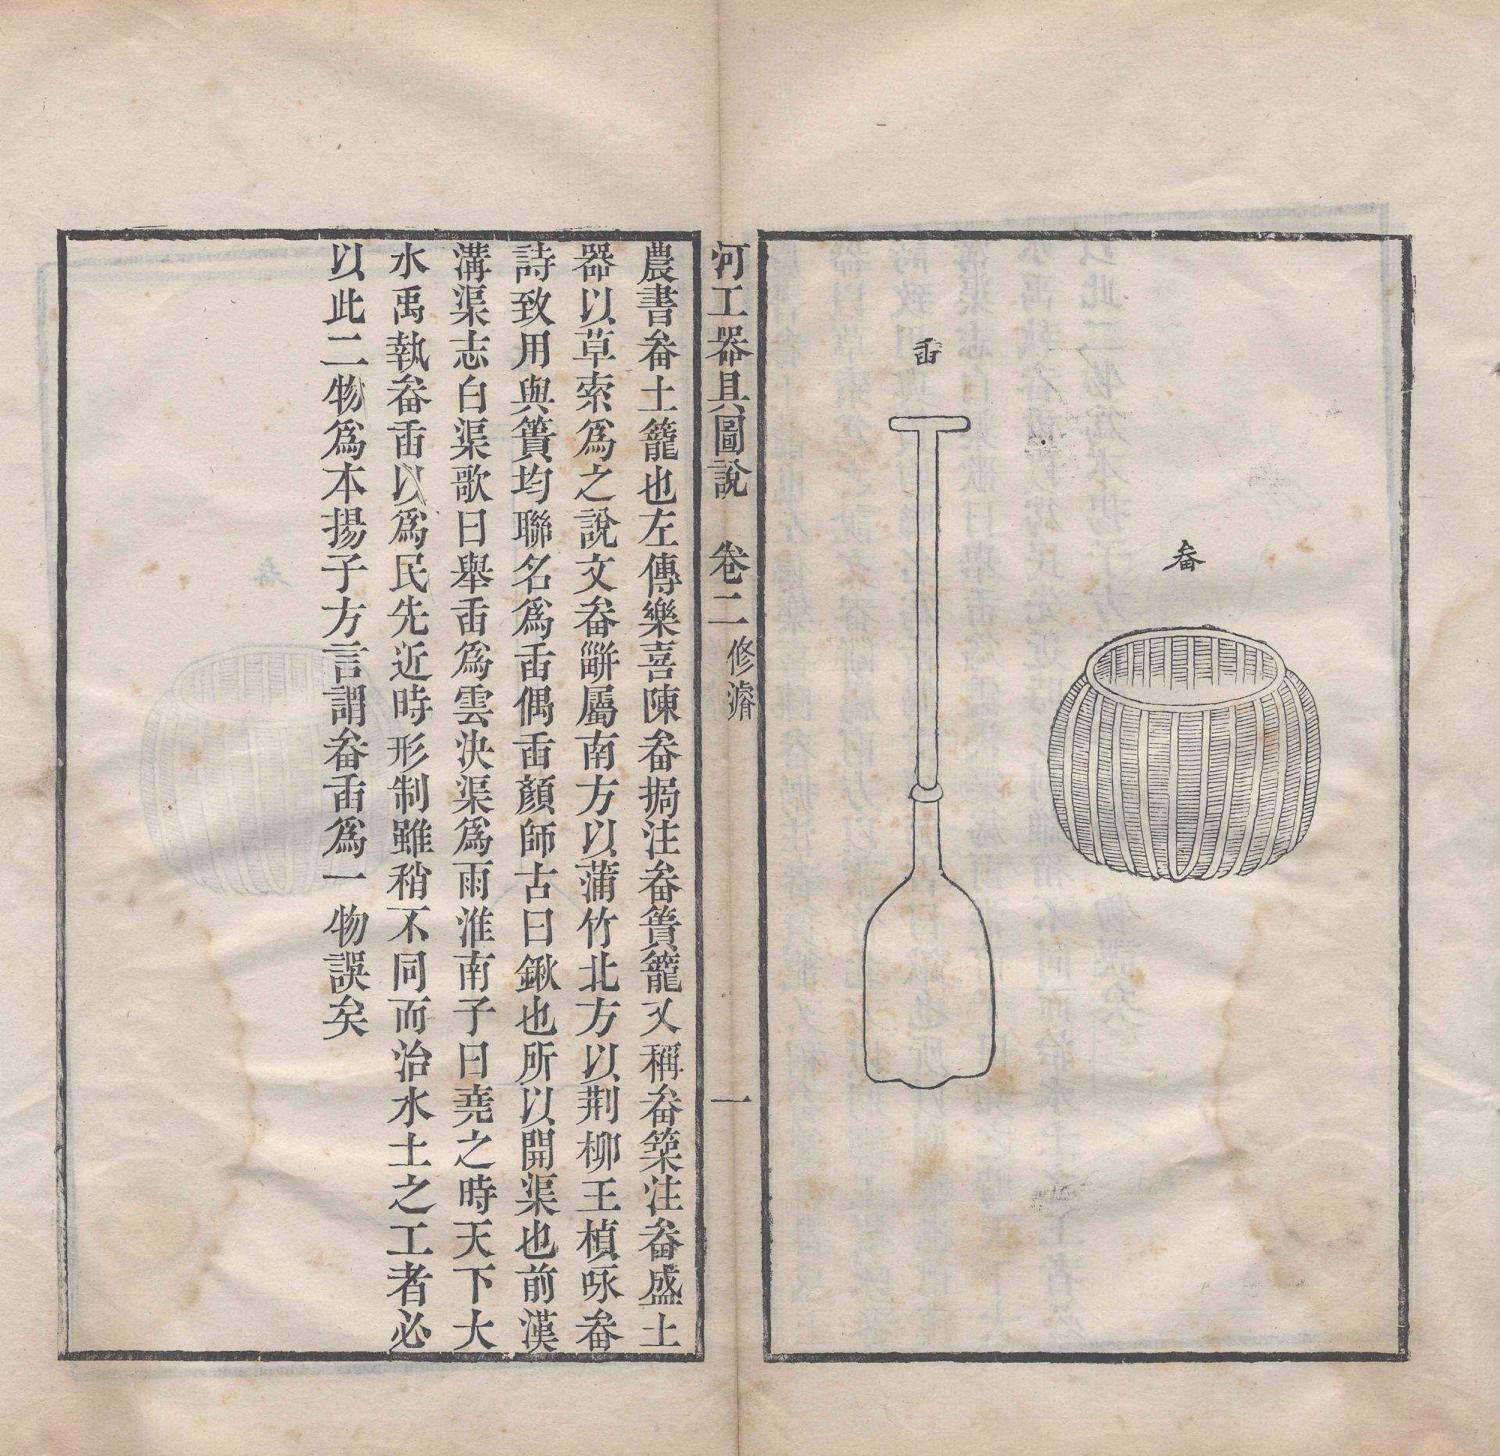 畚
臿
河工器具圖說 卷二 修濬 一
農書畚土籠也左傳樂喜陳畚挶注畚簣籠又稱畚築注畚盛土
器以草索爲之說文畚㽀屬南方以蒲竹北方以荆柳王楨咏畚
詩致用與簣均聯名爲臿偶臿顏師古曰鍬也所以開渠也前漢
溝渠志白渠歌曰舉臿爲雲決渠爲雨淮南子曰堯之時天下大
水禹執畚臿以爲民先近時形制雖稍不同而治水土之工者必
以此二物爲本揚子方言謂畚臿爲一物誤矣